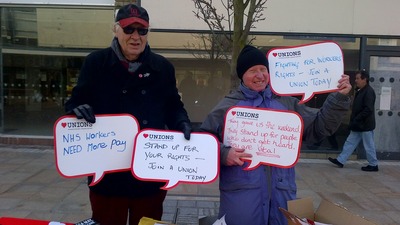 ♥UNIONS
NHS Workers
NEED More Pay
♥UNIONS
STAND UP FOR
YOUR RIGHTS -
JOIN A UNION
TODAY
♥UNIONS
stand up for people
♥UNIONS
FIGHTING FOR WORKERS
RIGHTS - JOIN A
UNION TODAY